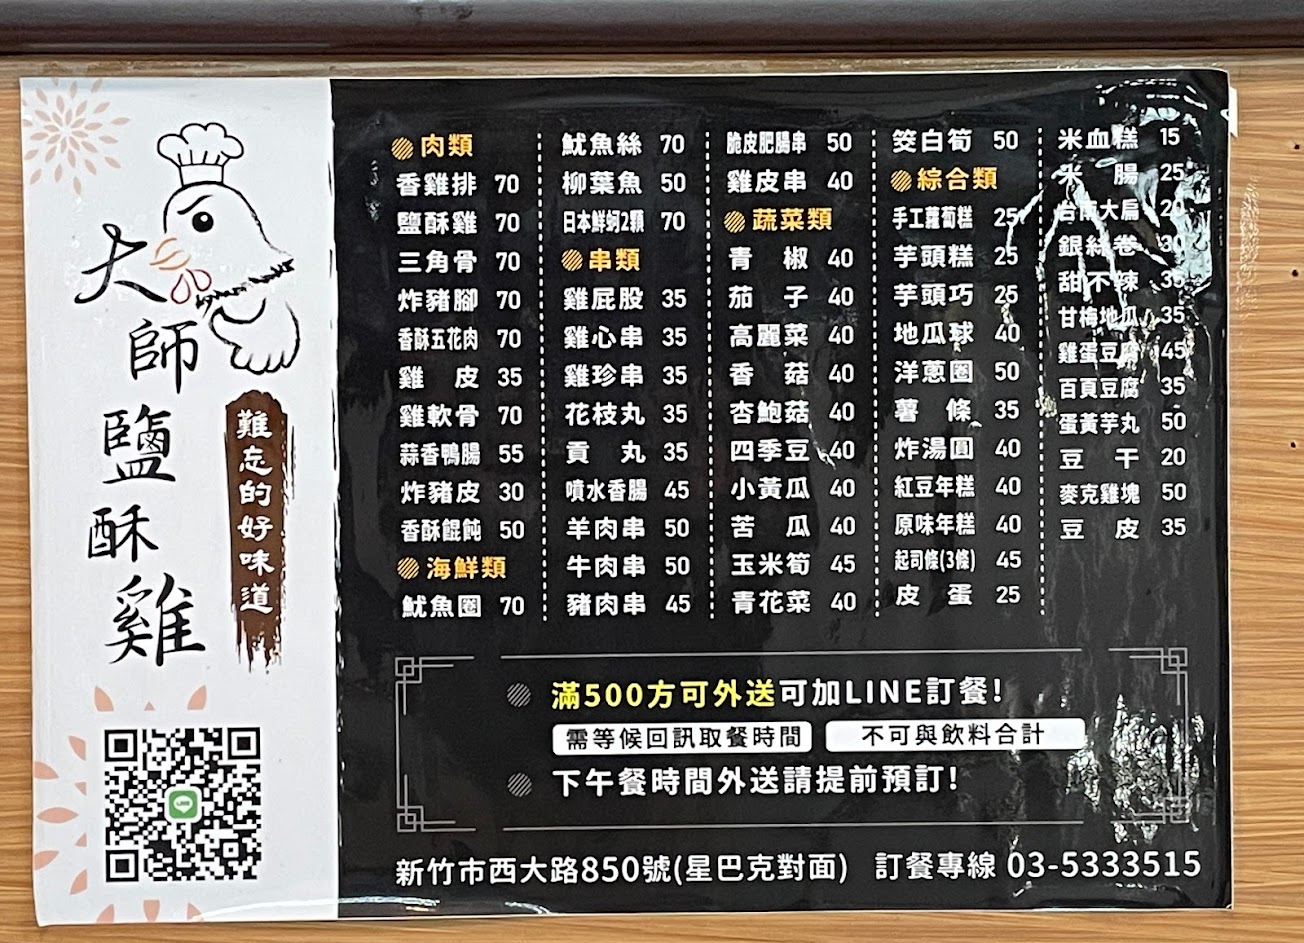 大師鹽酥雞
難忘的好味道
肉類
香雞排 70
鹽酥雞 70
三角骨 70
炸豬腳 70
香酥五花肉 70
雞皮 35
雞軟骨 70
蒜香鴨腸 55
炸豬皮 30
香酥餛飩 50
海鮮類
魷魚圈 70
魷魚絲 70
柳葉魚 50
日本鮮蚵2顆 70
串類
雞屁股 35
雞心串 35
雞珍串 35
花枝丸 35
貢丸 35
噴水香腸 45
羊肉串 50
牛肉串 50
豬肉串 45
脆皮肥腸串 50
雞皮串 40
蔬菜類
青椒 40
茄子 40
高麗菜 40
香菇 40
杏鮑菇 40
四季豆 40
小黃瓜 40
苦瓜 40
玉米筍 45
青花菜 40
筊白筍 50
綜合類
手工蘿蔔糕 25
芋頭糕 25
芋頭巧 25
地瓜球 40
洋蔥圈 50
薯條 35
炸湯圓 40
紅豆年糕 40
原味年糕 40
起司條(3條) 45
皮蛋 25
米血糕 15
米腸 25
台南大扁 20
銀絲卷 30
甜不辣 35
甘梅地瓜 35
雞蛋豆腐 45
百頁豆腐 35
蛋黃芋丸 50
豆干 20
麥克雞塊 50
豆皮 35
滿500方可外送可加LINE訂餐!
需等候回訊取餐時間 不可與飲料合計
下午餐時間外送請提前預訂!
新竹市西大路850號(星巴克對面) 訂餐專線 03-5333515